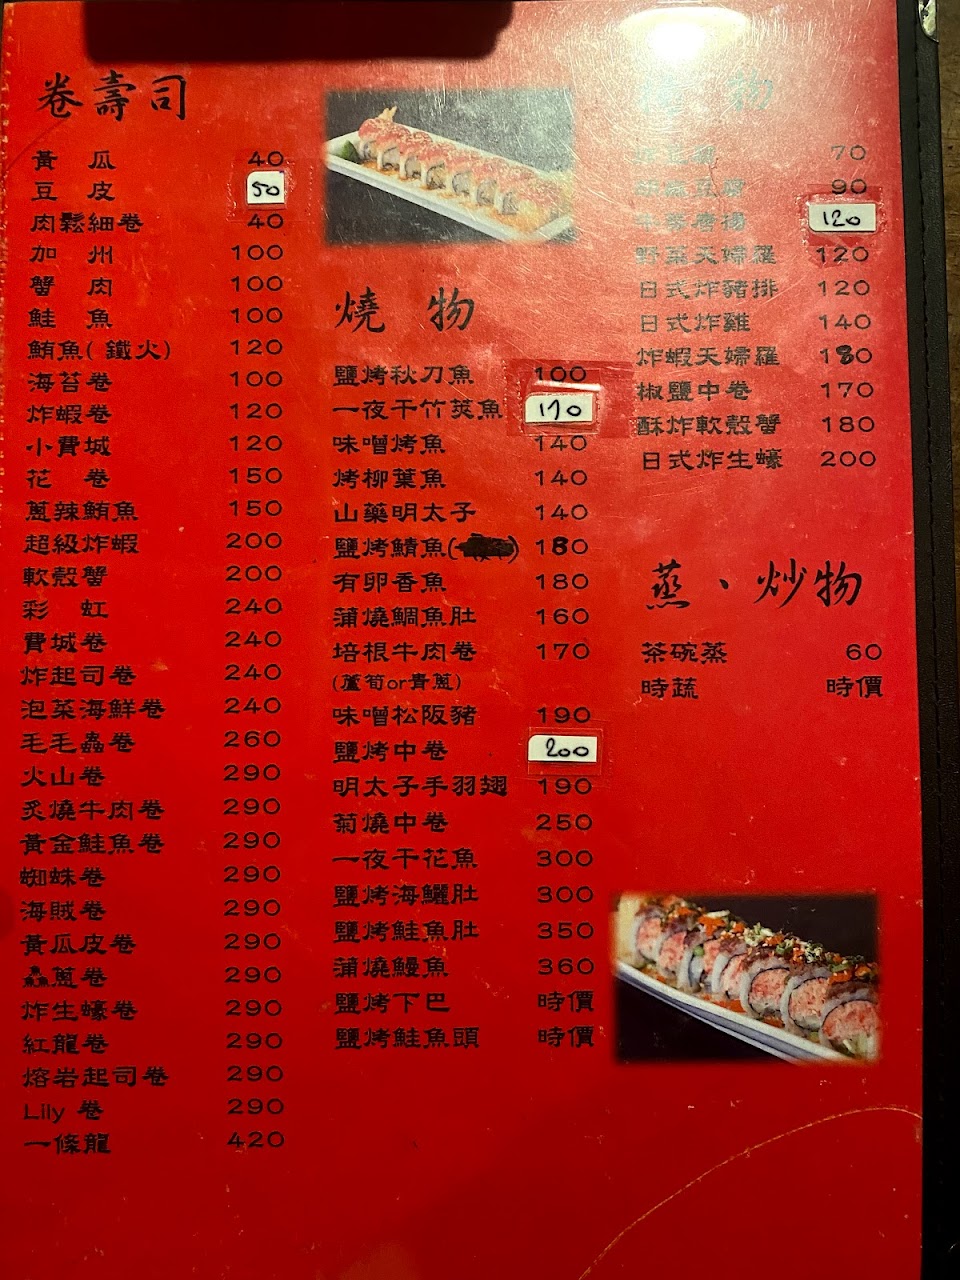 卷壽司
黃瓜 40
豆皮 50
肉鬆細卷 40
加州 100
蟹肉 100
鮭魚 100
鮪魚(鐵火) 120
海苔卷 100
炸蝦卷 120
小費城 120
花卷 150
蔥辣鮪魚 150
超級炸蝦 200
軟殼蟹 200
彩虹 240
費城卷 240
炸起司卷 240
泡菜海鮮卷 240
毛毛蟲卷 260
火山卷 290
炙燒牛肉卷 290
黃金鮭魚卷 290
蜘蛛卷 290
海賊卷 290
黃瓜皮卷 290
鱻蔥卷 290
炸生蠔卷 290
紅龍卷 290
熔岩起司卷 290
Lily 卷 290
一條龍 420
燒物
鹽烤秋刀魚 100
一夜干竹筴魚 170
味噌烤魚 140
烤柳葉魚 140
山藥明太子 140
鹽烤鯖魚( ) 180
有卵香魚 180
蒲燒鯛魚肚 160
培根牛肉卷 170
(蘆筍or青蔥)
味噌松阪豬 190
鹽烤中卷 200
明太子手羽翅 190
菊燒中卷 250
一夜干花魚 300
鹽烤海鱺肚 300
鹽烤鮭魚肚 350
蒲燒鰻魚 360
鹽烤下巴 時價
鹽烤鮭魚頭 時價
物
70
豆腐 90
唐揚 120
野菜天婦羅 120
日式炸豬排 120
日式炸雞 140
炸蝦天婦羅 180
椒鹽中卷 170
酥炸軟殼蟹 180
日式炸生蠔 200
蒸、炒物
茶碗蒸 60
時蔬 時價